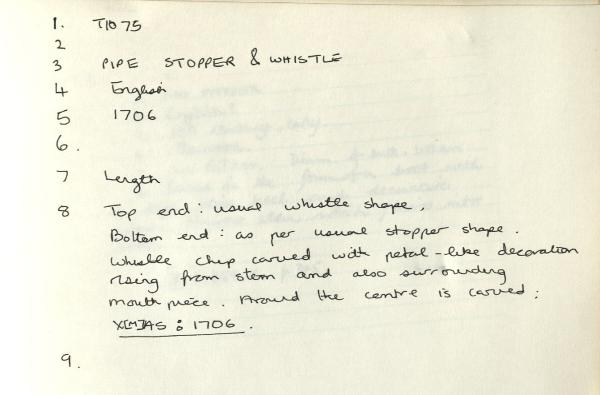 1. T1075
2
3 PIPE STOPPER & WHISTLE
4 English
5 1706
6.
7 Length
8 Top end : usual whistle shape,
Bottom end : as per usual stopper shape.
Whistle chip carved with petal-like decoration
rising from stem and also surrounding
mouth piece. Around the centre is carved :
X[M]AS : 1706.
9.